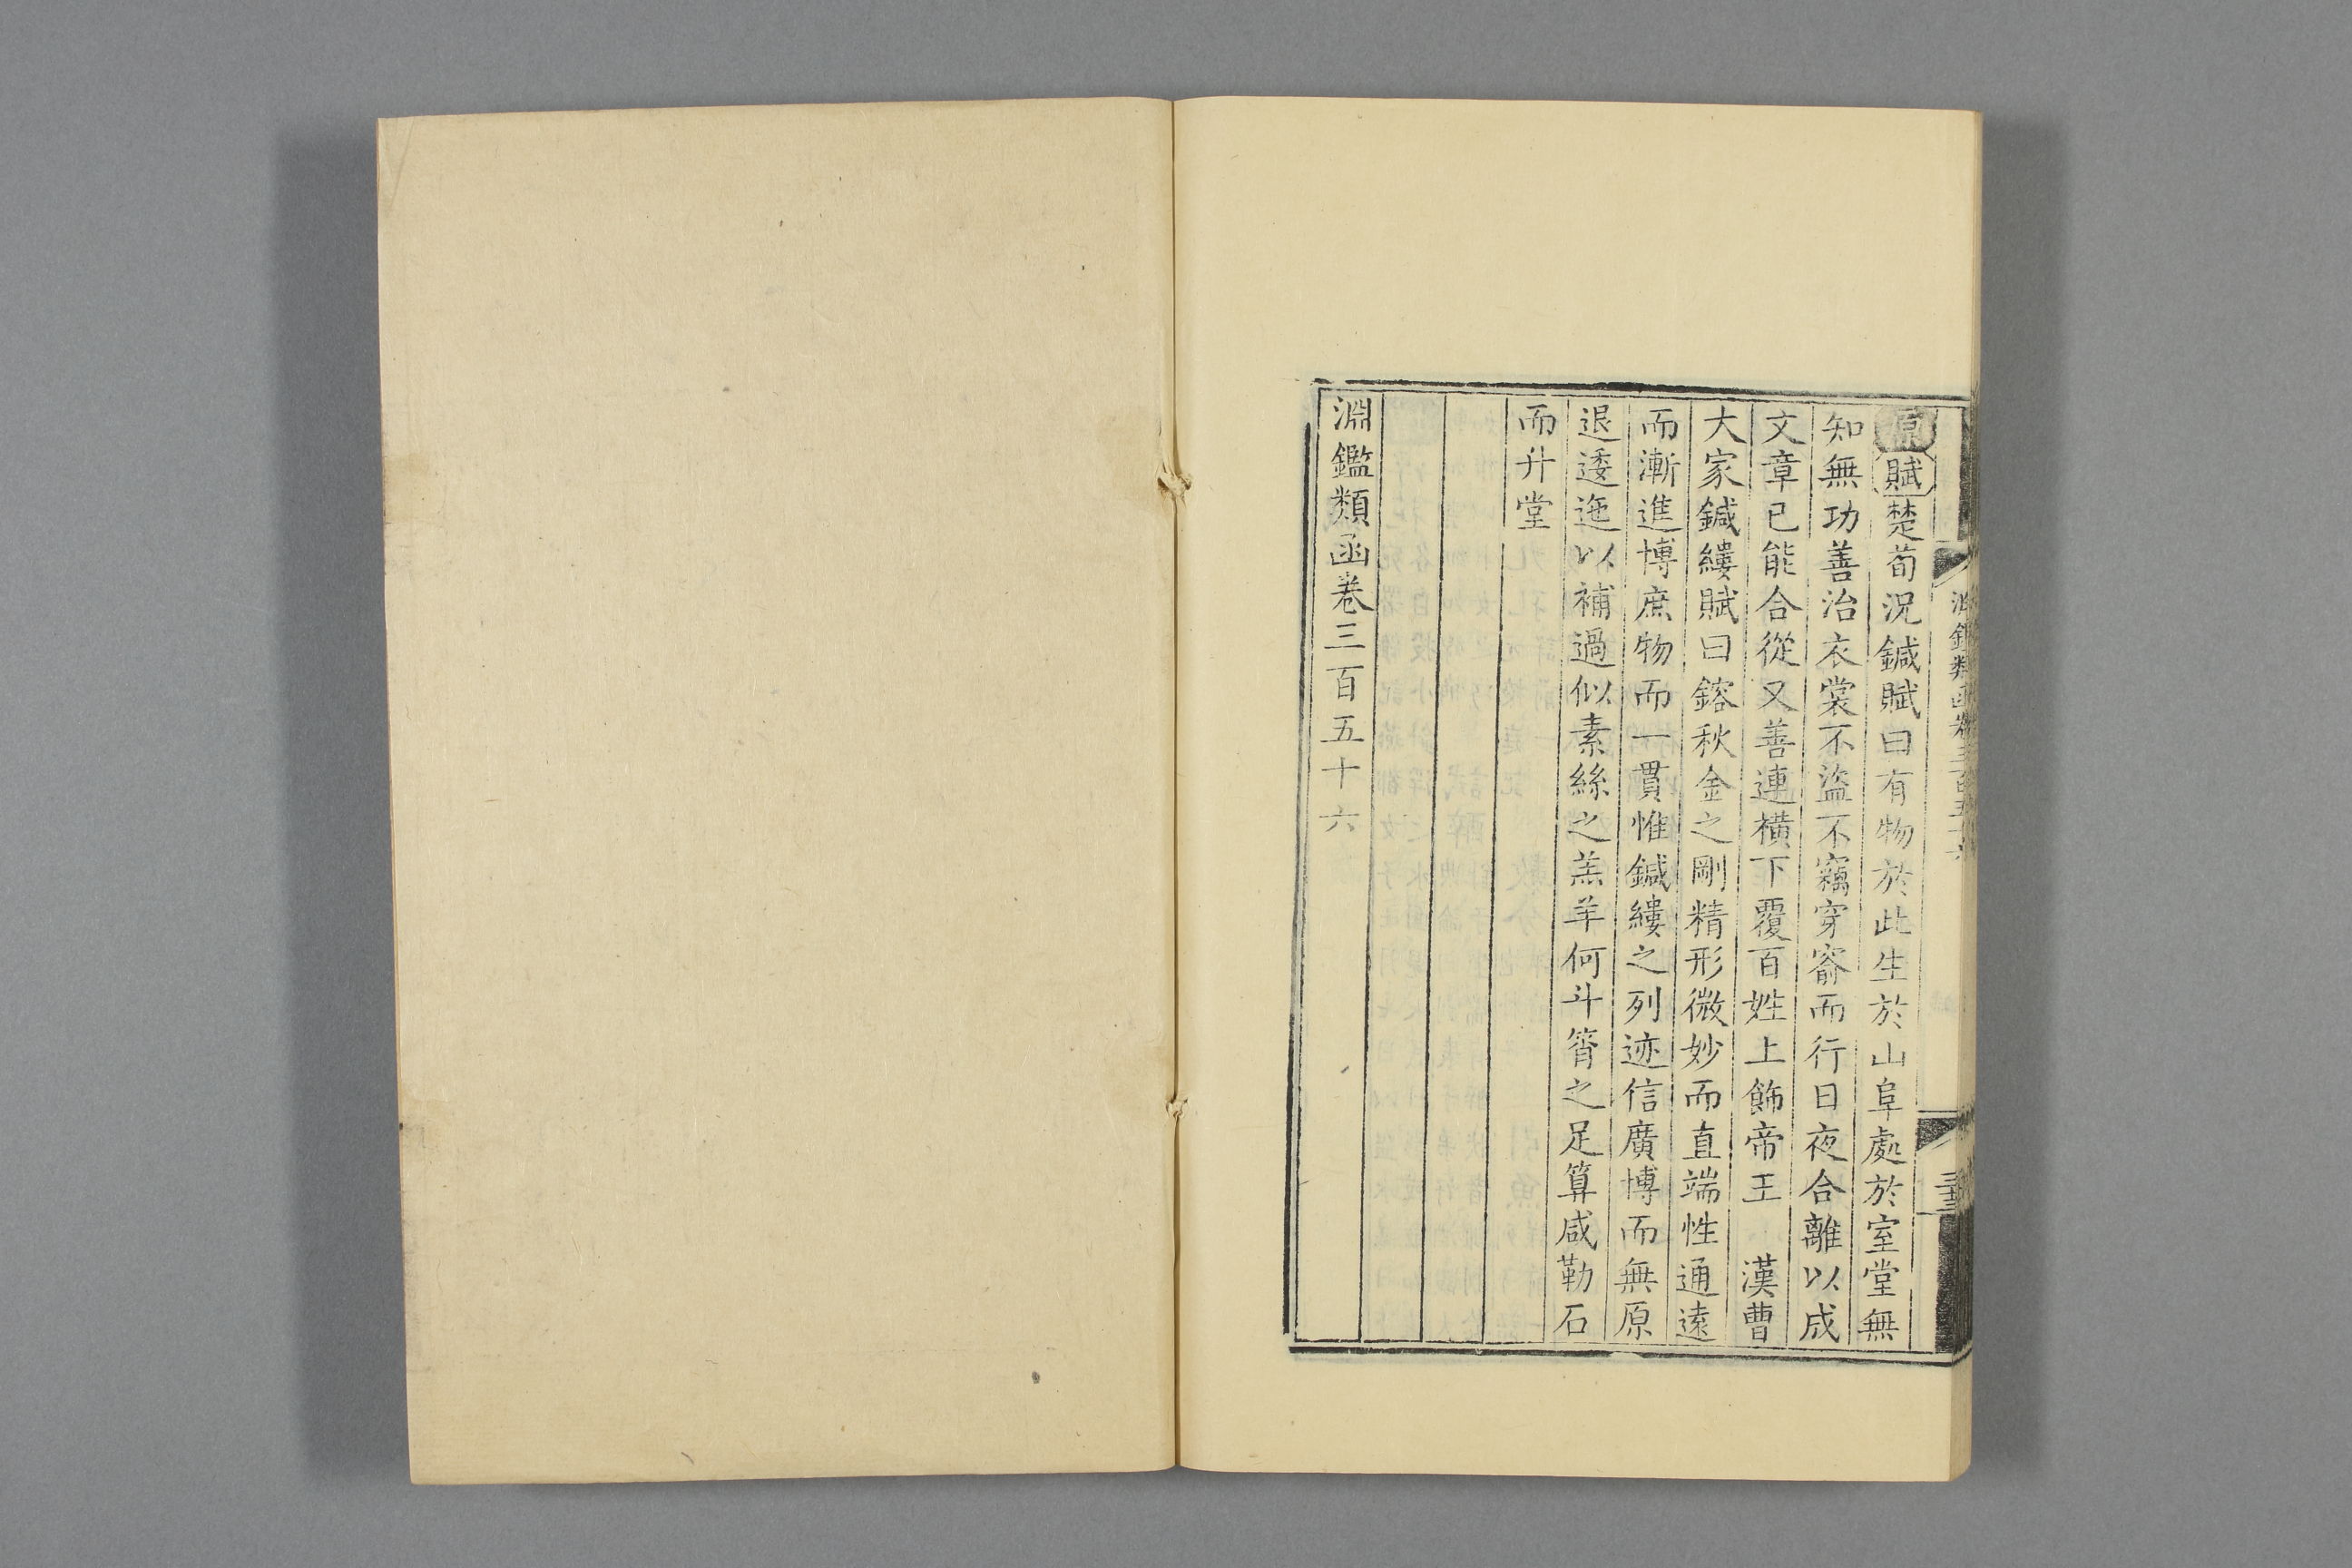 淵鑑類函卷三百五十六
原賦楚荀況鍼賦曰有物於此生於山阜處於室堂無
知無功善治衣裳不盜不竊穿窬而行日夜合離以成
文章已能合從又善連橫下覆百姓上飾帝王　漢曹
大家鍼縷賦曰鎔秋金之剛精形微妙而直端性通遠
而漸進博庶物而一貫惟鍼縷之列迹信廣博而無原
退逶迤以補過似素絲之羔羊何斗筲之足算咸勒石
而升堂
淵鑑類函卷三百五十六